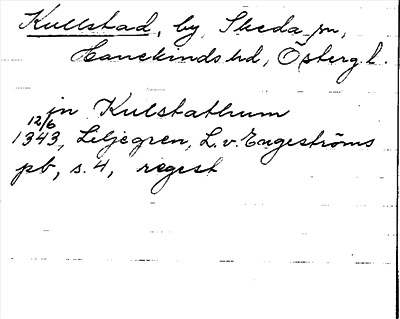 Kullstad, by, Skeda sn,
Hanekinds hd, Österg. l.
in Kulstathum
12/6
1343, Liljegren, L. v. Engeströms
pb, s. 4, regest